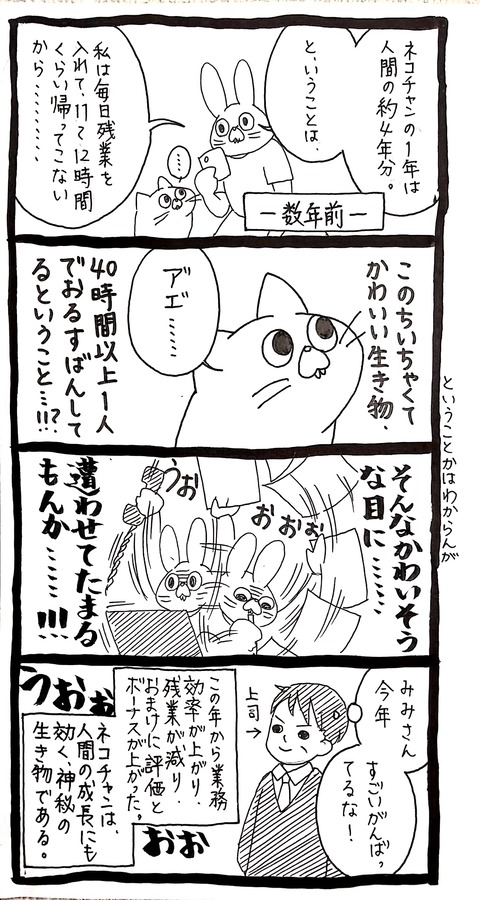 ネコチャンの1年は
人間の約4年分。
ということは、
ー数年前ー
…
私は毎日残業を
入れて、11〜12時間
くらい帰ってこない
から………
このちいちゃくて
かわいい生き物、
アエ……
40時間以上1人
でおるすばんして
るということ…!!?
ということかはわからんが
そんなかわいそう
な目に……
うお
おおお
遭わせてたまる
もんか……!!!
みみさん
今年
すごいがんばっ
てるな!
上司→
この年から業務
効率が上がり、
残業が減り、
おまけに評価と
ボーナスが上がった。
うおぉ
おお
ネコチャンは、
人間の成長にも
効く、神秘の
生き物である。